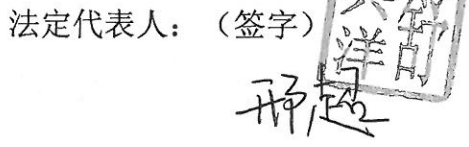 法定代表人：（签字）
洋印
邢超